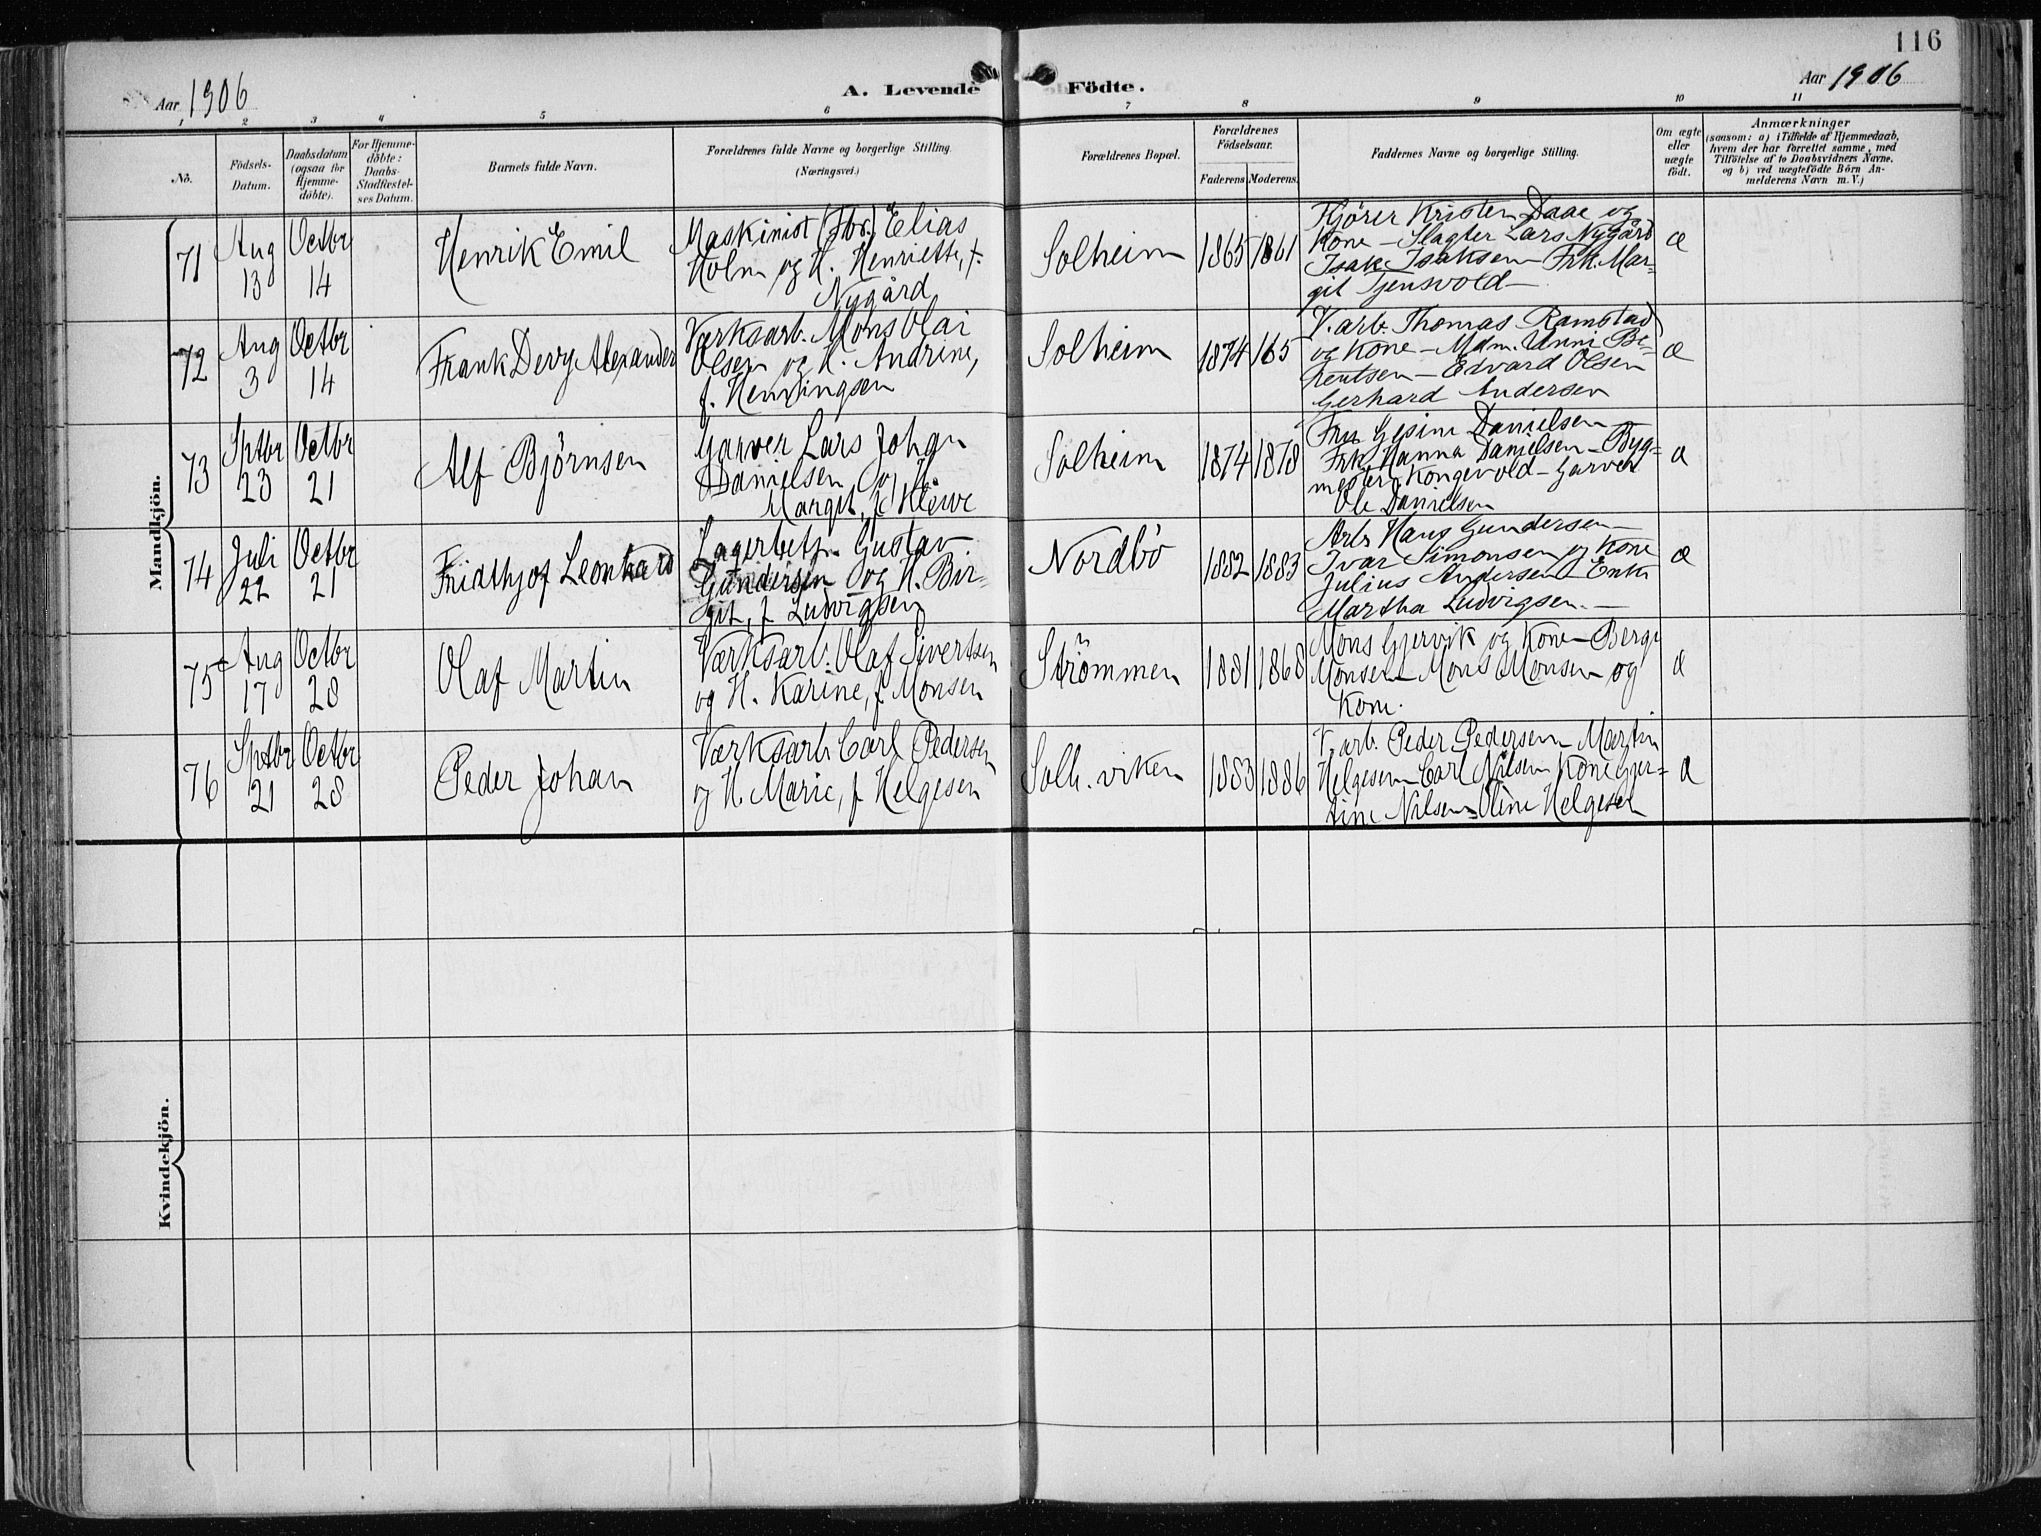 116
Aar 1906
A. Levende Födte.
Aar 1906
1 2 3 4 5 6 7 8 9 10 11
No.
Födsels-
Datum.
Daabsdatum
(ogsaa for
Hjemme-
döbte).
For Hjemme-
döbte:
Daabs-
Stadfæstel-
ses Datum.
Barnets fulde Navn.
Forældrenes fulde Navne og borgerlige Stilling.
(Næringsvei.)
Forældrenes Bopæl.
Forældrenes
Födselsaar.
Faderens Moderens.
Faddernes Navne og borgerlige Stilling.
Om ægte
eller
uægte
födt.
Anmærkninger
(saasom: a) i Tilfælde af Hjemmedaab,
hvem der har forrettet samme, med
Tilföielse af to Daabsvidners Navne,
og b) ved uægtefödte Börn An-
melderens Navn m. V.)
Mandkjön.
71
Aug
13
Octbr
14
Henrik Emil
Maskinist Elias
Holm og H. Henriette, f.
Nygård
Solheim
1865
1861
Kristen Daae og
Kone - Slagter Lars Nygård
Isak Isaksen - Frk. Mar-
git Tjensvold -
æ
72
Aug
3
Octbr
14
Frank Devy Alexander
Værksarb. Mons Olai
Olsen og H. Andrine,
f. Henningsen
Solheim
1874
165
V. arb. Thomas Ramstad
og Kone - Mdm. Unni Be-
rentsen - Edvard Olsen
Gerhard Andersen
æ
73
Sptbr
23
Octbr
21
Alf Björnsen
Garver Lars Johan
Danielsen og H.
Margit, f.
Solheim
1874
1878
Fru Gesine Danielsen
Frk. Hanna Danielsen - Byg-
mester Kongevold - Garver
Ole Danielsen
æ
74
Juli
22
Octbr
21
Fridthjof Leonhard
Lagerbetj. Gustav
Gundersen og H. Bir-
git, f. Ludvigsen
Nordbö
1882
1883
Arb. Hans Gundersen -
Ivar Simonsen og Kone
Julius Andersen - Enke
Martha Ludvigsen. -
æ
75
Aug
17
Octbr
28
Olaf Martin
Værksarb. Olaf Sivertsen
og H. Karine, f. Monsen
Strömmen
1881
1868
Mons Gjervik og Kone - Berge
Monsen - Mons Monsen og
Kone.
æ
76
Sptbr
21
Octbr
28
Peder Johan
Værksarb. Carl Pedersen
og H. Marie, f. Helgesen
Solh. viken
1883
1886
V. arb. Peder Pedersen - Martin
Helgesen - Carl Nilsen Kone Gjer-
tine Nilsen - Oline Helgesen
æ
Kvindekjön.